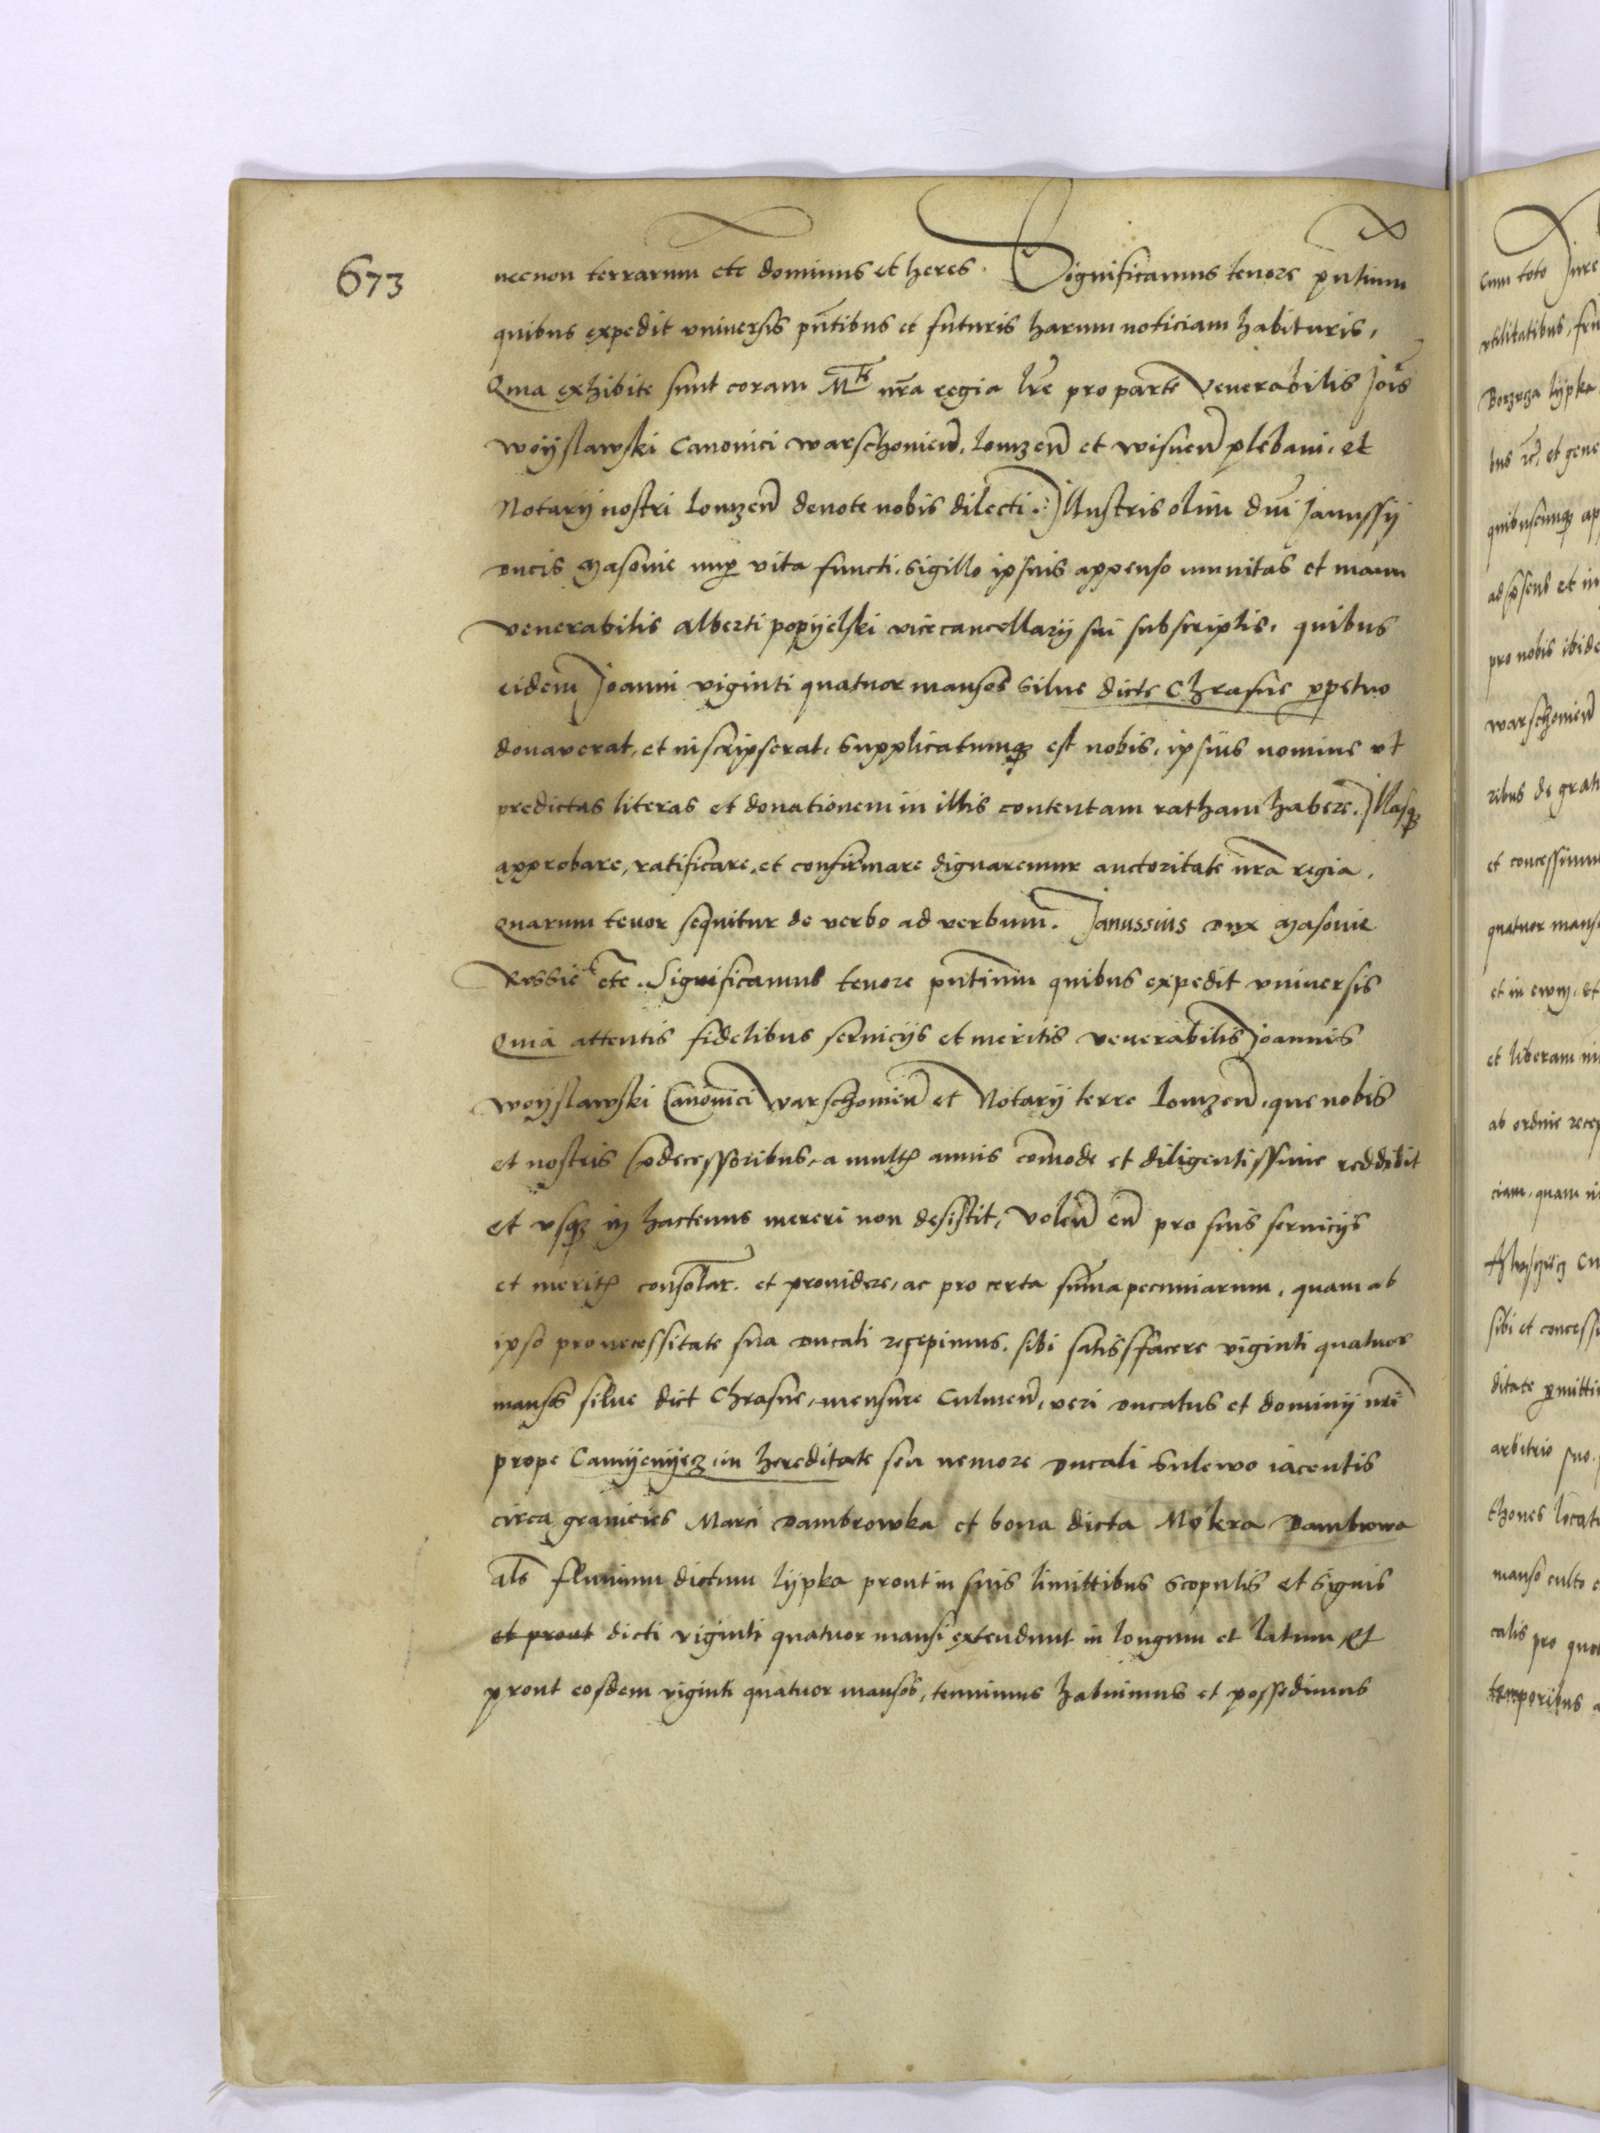 673
necnon terrarum etc dominus et heres. Significamus tenore pntium
quibus expedit vniversis pntibus et futuris harum noticiam habituris,
Quia exhibite sunt coram Mte nra regia lre pro parte Venerabilis Jois
woyslawski Canonici warschovien, lomzen et wisnen plebani, et
Notarij nostri lomzen devote nobis dilecti. Illustris olim dni Janussij
ducis Masovie nup vita functi, sigillo ipsius appenso munitas et manu
venerabilis alberti popyelski vicecancellarij sui subscriptis, quibus
eidem Joanni viginti quatuor mansos silve dicte Chrasne ppetuo
donaverat, et inscripserat, Supplicatumq est nobis, ipsius nomine vt
predictas literas et donationem in illis contentam ratham habere, Illasq
approbare, ratificare, et confirmare dignaremur auctoritate nra regia,
Quarum tenor sequitur de verbo ad verbum. Janussius dux Masovie
Russie etc. Significamus tenore pntium quibus expedit vniversis
Quia attentis fidelibus servicijs et meritis venerabilis Joannis
woyslawski Canonici warschovien et Notarij terre lomzen, que nobis
et nostris pdecessoribus, a mult annis comode et diligentissime reddidit
et vsq in hactenus mereri non desistit, Volen en pro suis servicijs
et merit consolar. et providere, ac pro certa suma pecuniarum, quam ab
ipso pro necessitate sua ducali recepimus, sibi satisfacere viginti quatuor
mansos silve dict Chrasne, mensure Culmen, veri ducatus et dominij nri
prope Camyenyecz in hereditate seu nemore ducali Sulewo iacentis
circa granicies Marci dambrowka et bona dicta Mokra dambrowa
als fluvium dictum lypka prout in suis limittibus scopulis et signis
et prout dicti viginti quatuor mansi extendunt in longum et latum et
prout eosdem viginti quatuor mansos, tenuimus habuimus et possedimus
Cum toto Jure
vtilitatibus, fru
lypka
bus et gene
quibuscunq ap
et in
pro nobis ibide
warschovien
ribus de grat
et concessimus
quatuor manso
et in
et liberam
ab ordine recep
ciam, quam
sibi et concessi
ditate pmitti
arbitrio suo
thones locat
manso culto
calis pro quo
temporibus